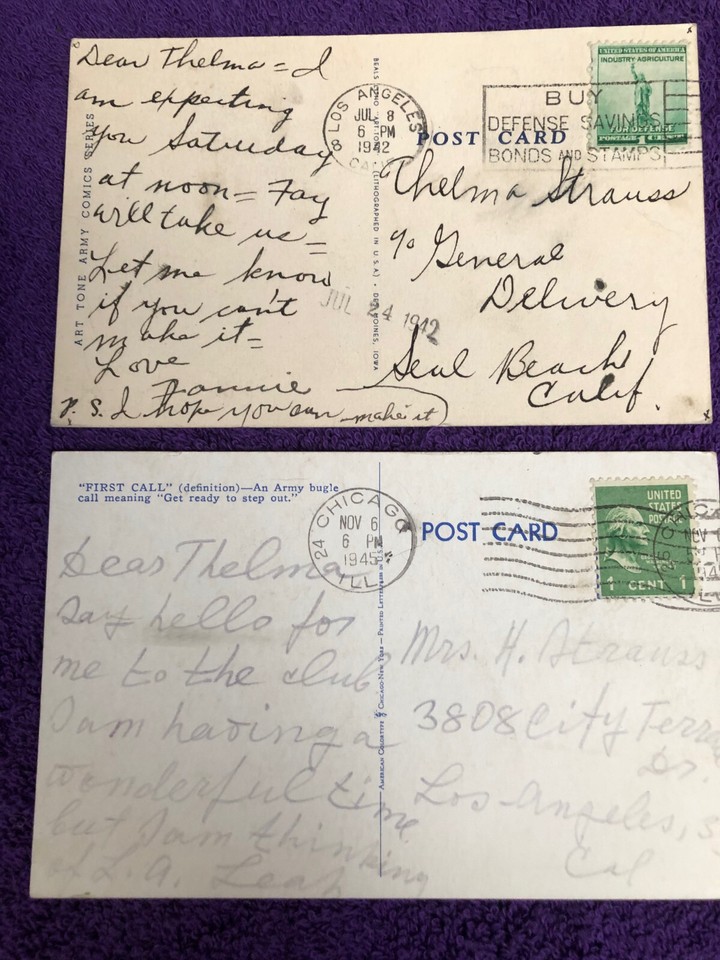 Dear Thelma = I
am expecting
you Saturday
at noon = Fay
will take us =
Let me know
if you can't
make it =
Love
Fannie
P.S. I hope you can make it
ART TONE ARMY COMICS SERIES
(LITHOGRAPHED IN U.S.A.) • DES MOINES, IOWA
LOS ANGELES
JUL 8
6 PM
1942
BUY
DEFENSE SAVINGS
BONDS AND STAMPS
UNITED STATES OF AMERICA
INDUSTRY·AGRICULTURE
FOR DEFENSE
POSTAGE 1 CENT
POST CARD
Thelma Strauss
c/o General
Delivery
Seal Beach
Calif.
JUL 24 1942
"FIRST CALL" (definition)—An Army bugle
call meaning "Get ready to step out."
Dear Thelma
Say hello for
me to the club
I am having a
wonderful time
but I am thinking
of L.A. Leah
24 CHICAGO
NOV 6
6 PM
1945
ILL.
POST CARD
UNITED
STATES
POSTAGE
1 CENT 1
Mrs. H. Strauss
3808 City Terra
Dr.
Los Angeles,
Cal